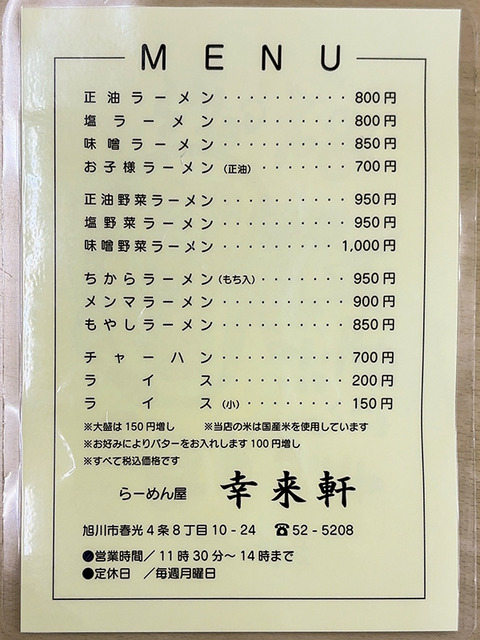 MENU
正油ラーメン・・・・・・・・・・800円
塩ラーメン・・・・・・・・・・800円
味噌ラーメン・・・・・・・・・・850円
お子様ラーメン(正油)・・・・・・・700円
正油野菜ラーメン・・・・・・・・・・950円
塩野菜ラーメン・・・・・・・・・・950円
味噌野菜ラーメン・・・・・・・・・1,000円
ちからラーメン(もち入)・・・・・・・950円
メンマラーメン・・・・・・・・・・900円
もやしラーメン・・・・・・・・・・850円
チャーハン・・・・・・・・・・700円
ライス・・・・・・・・・・200円
ライス(小)・・・・・・・・150円
※大盛は150円増し ※当店の米は国産米を使用しています
※お好みによりバターをお入れします100円増し
※すべて税込価格です
らーめん屋 幸来軒
旭川市春光4条8丁目10-24 ☎52-5208
●営業時間/11時30分〜14時まで
●定休日 /毎週月曜日